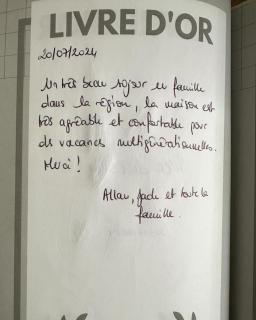 LIVRE D'OR
20/07/2024
Un très beau séjour en famille
dans la région, la maison est
très agréable et confortable pour
des vacances multigénérationnelles.
Merci !
Allan, Jade et toute la
famille.